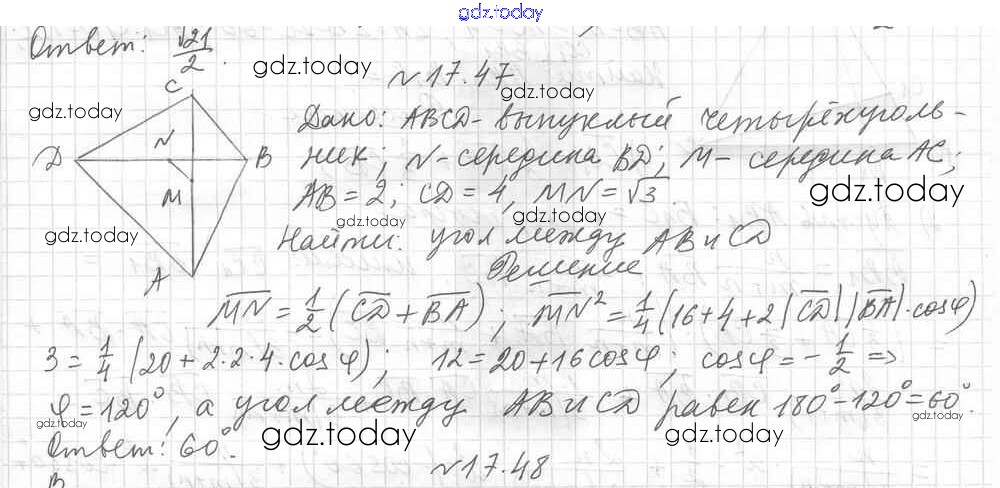 gdz.today
Ответ: √21/2.
gdz.today
№17.47
gdz.today
C
gdz.today
N
D
B
M
A
gdz.today
Дано: ABCD - выпуклый четырёхуголь-
ник; N - середина BD; M - середина AC;
AB = 2; CD = 4, MN = √3.
gdz.today
gdz.today
gdz.today
Найти: угол между AB и CD
Решение
M̅N̅ = 1/2 (C̅D̅ + B̅A̅); M̅N̅² = 1/4 (16+4+2|C̅D̅||B̅A̅|·cosφ)
3 = 1/4 (20 + 2·2·4·cosφ); 12 = 20 + 16cosφ; cosφ = -1/2 =>
φ = 120°, а угол между AB и CD равен 180°-120°=60°.
gdz.today
gdz.today
gdz.today
Ответ: 60°.
№17.48
B